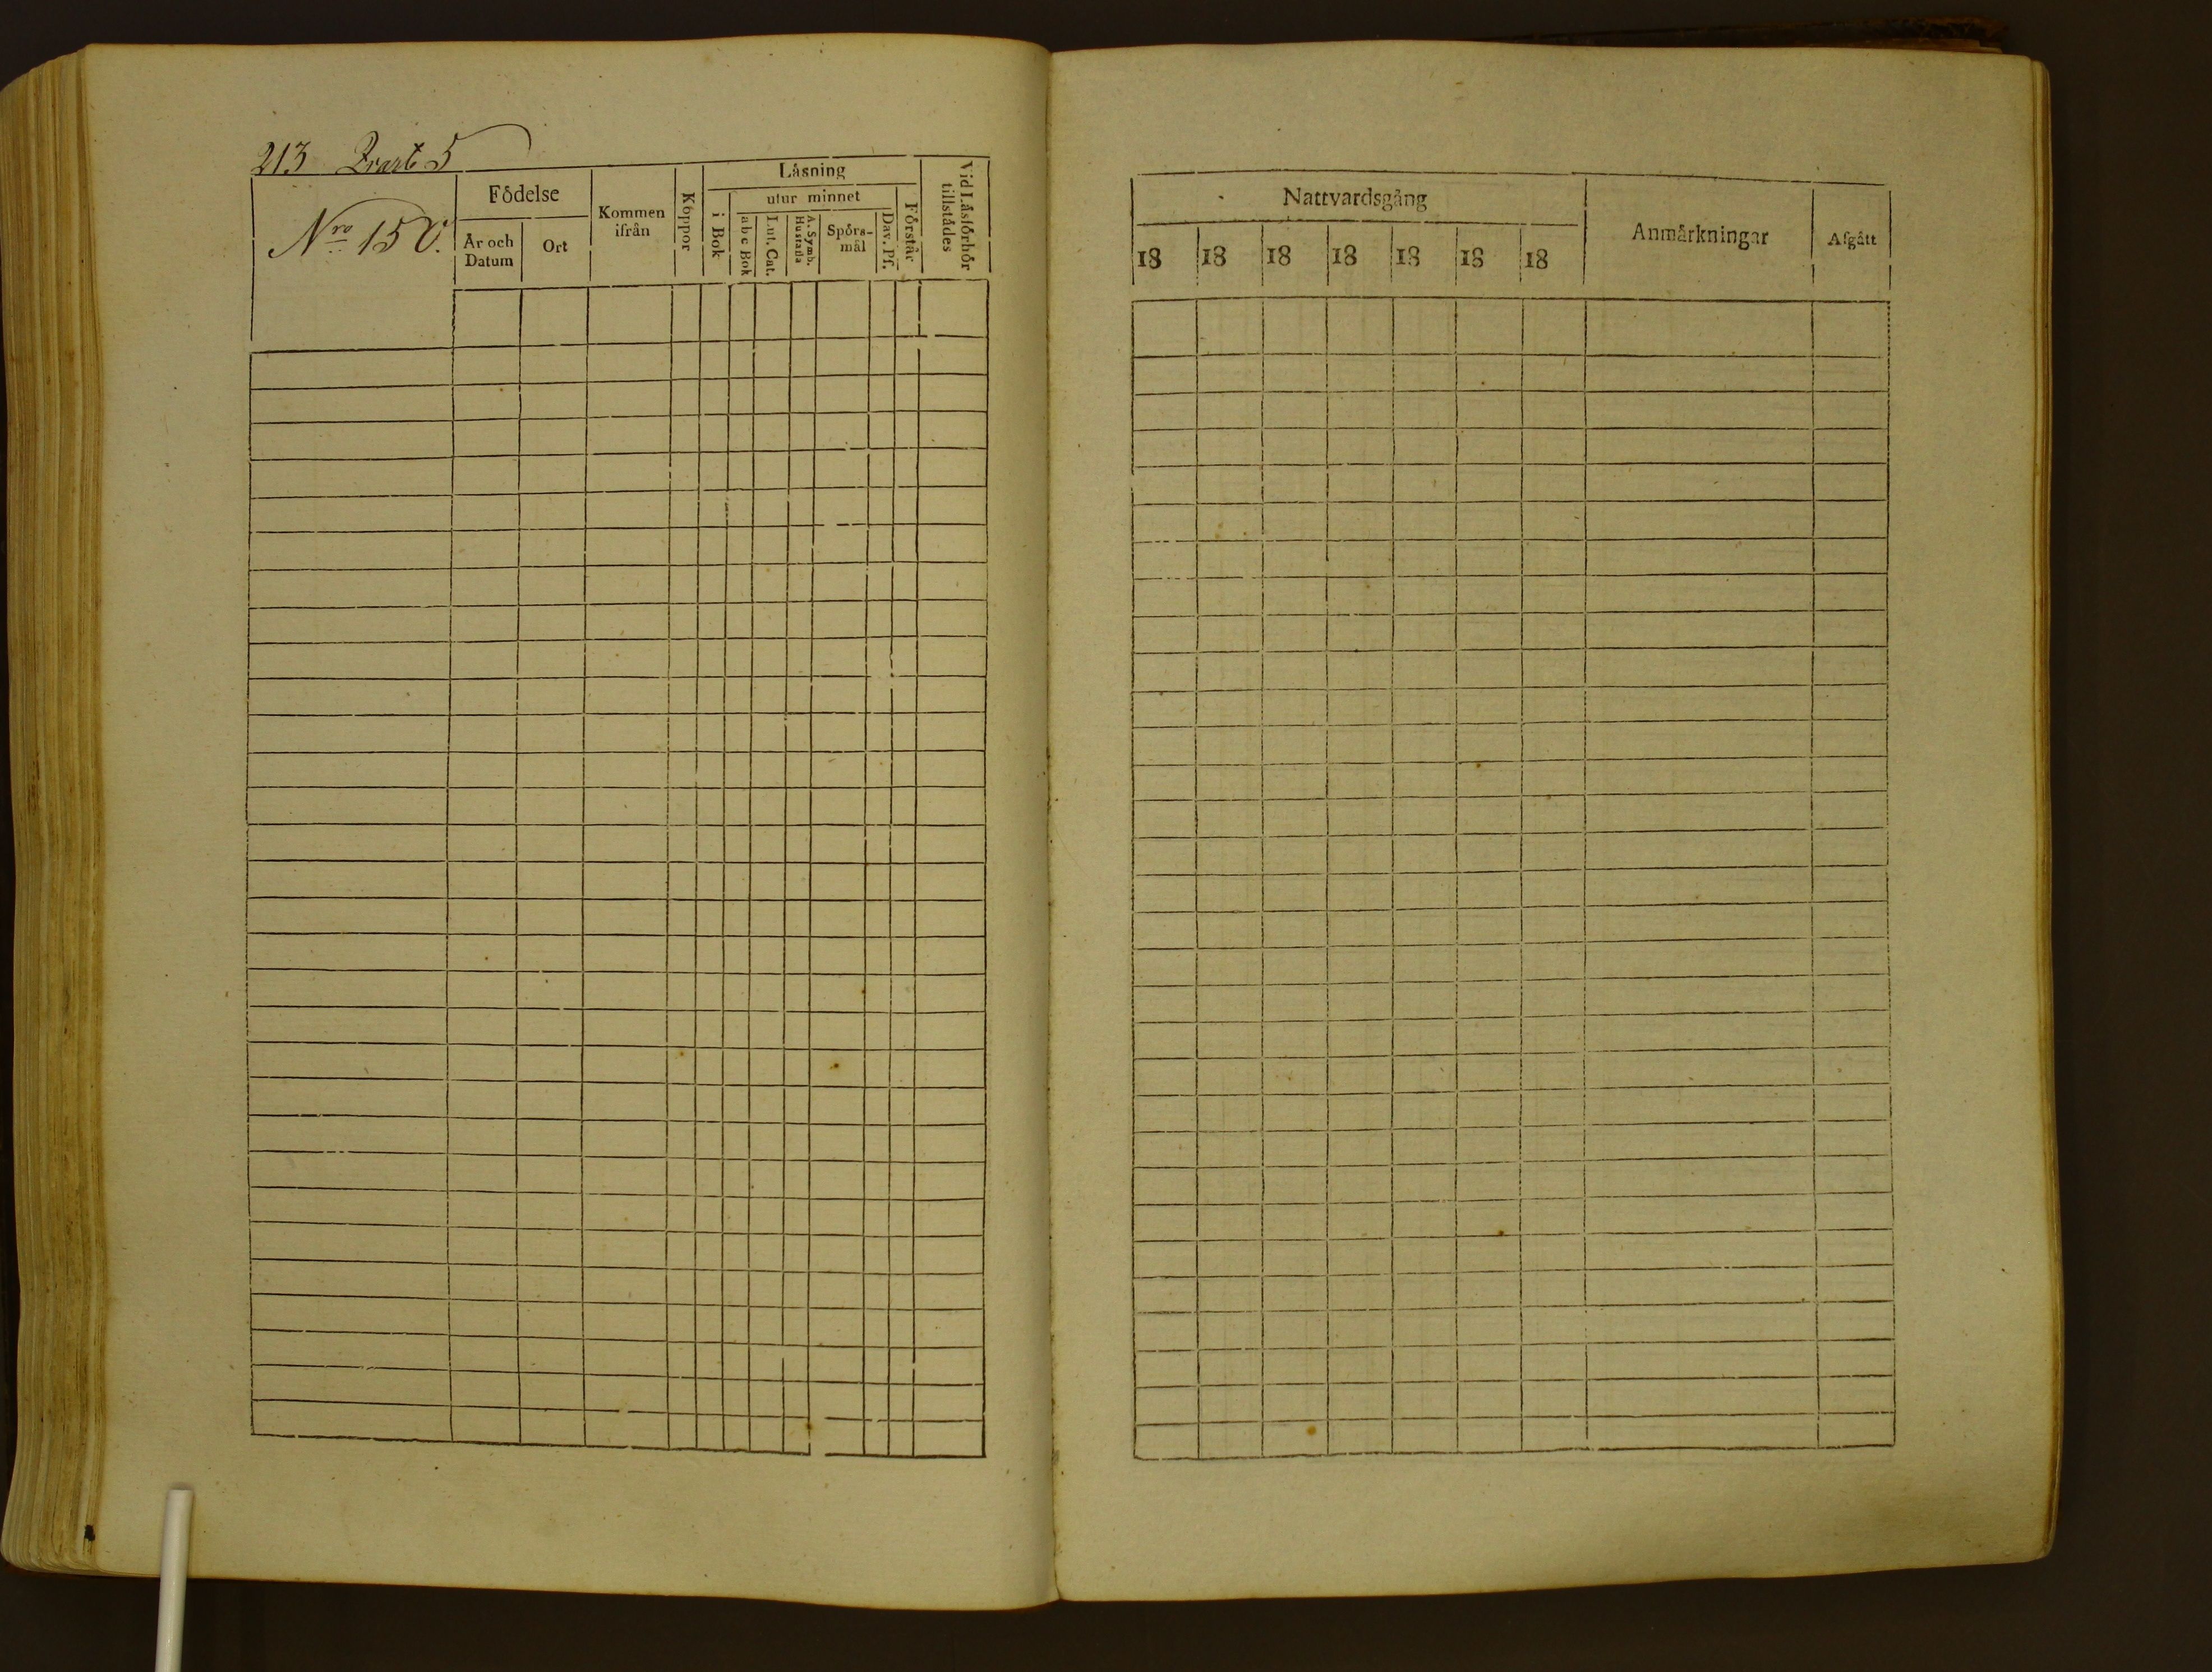 213 Qvart. 5
Nro 150.
Födelse
År och Datum
Ort
Kommen ifrån
Koppor
Läsning
i Bok
utur minnet
abc Bok
Lut. Cat.
A. Symb. Hustafla
Spörs-mål
Dav. Ps.
Förstår
Vid Läsförhör tillstädes
Nattvardsgång
18 18 18 18 18 18 18
Anmärkningar
Afgått